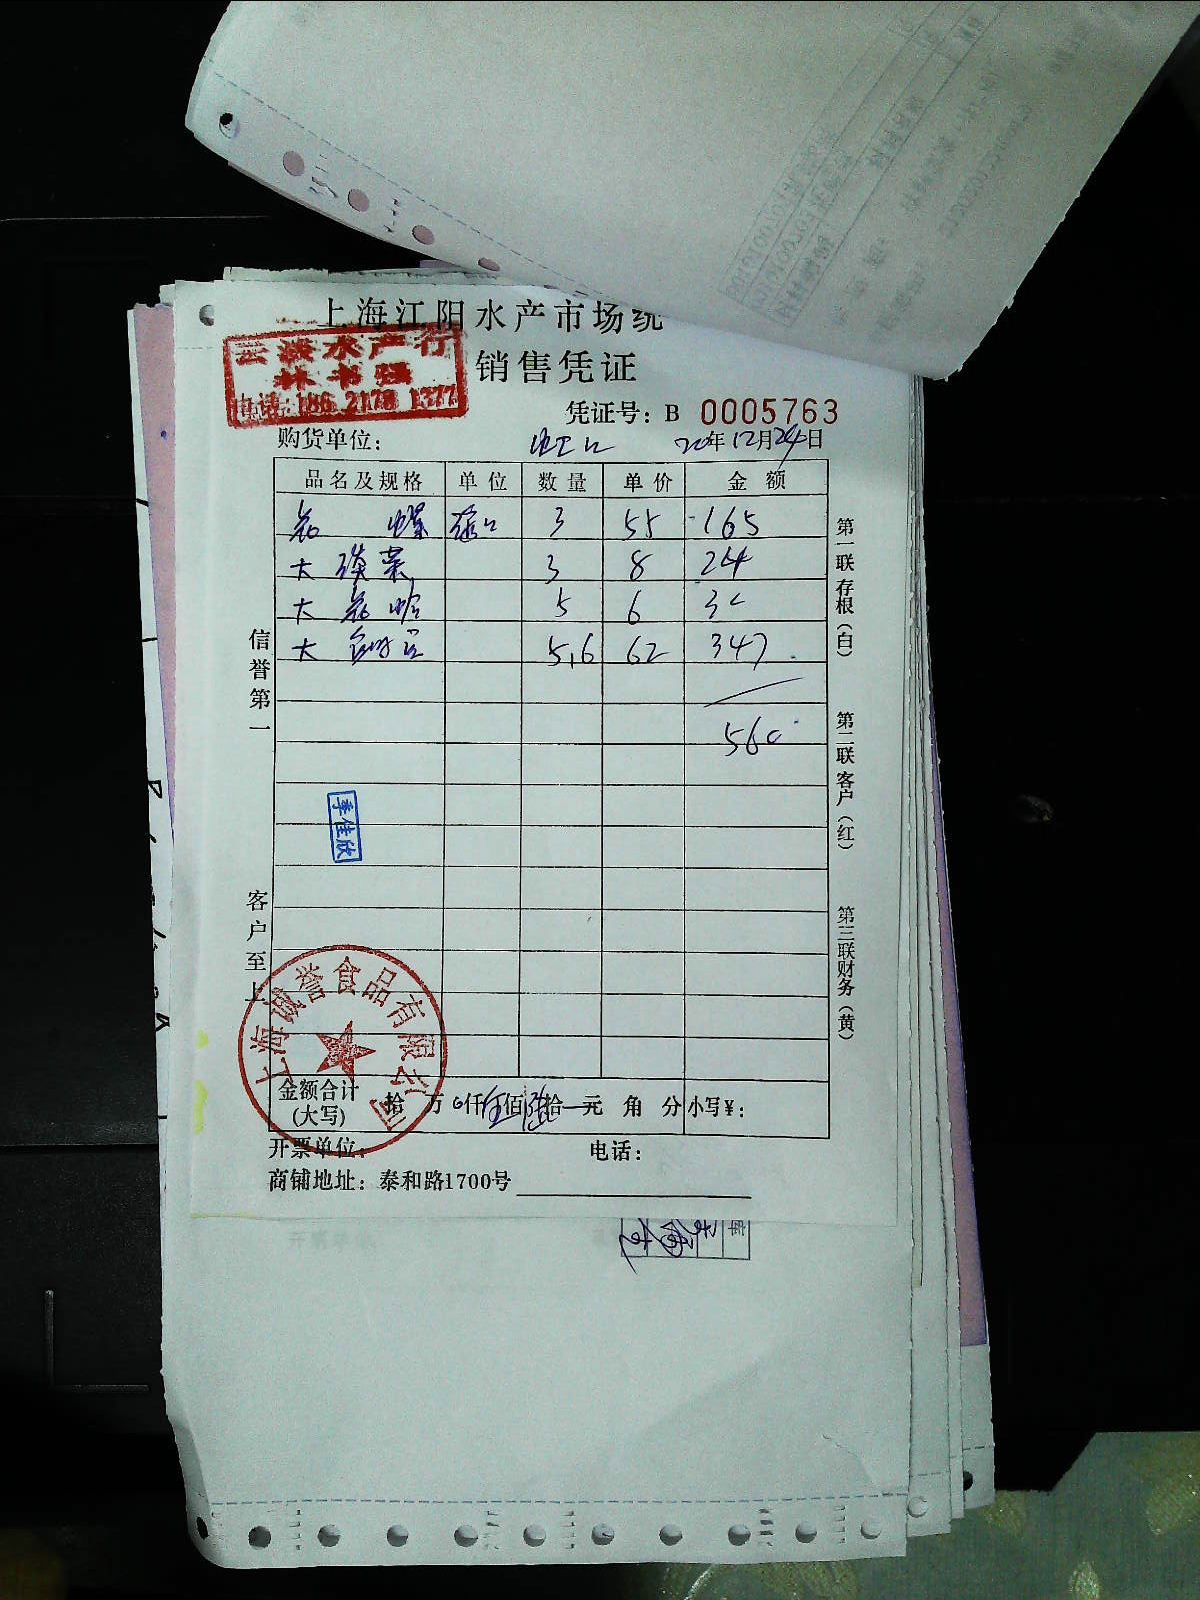 上海江阳水产市场统
水产行
电话:186 2178 1377
销售凭证
凭证号: B 0005763
购货单位: 20年12月24日
品名及规格 单位 数量 单价 金额
花 螺 3 55 165
大 淡菜 3 8 24
大 花蛤 5 6 30
大 5.6 62 347
560
信誉第一
客户至上
第一联存根(白)
第二联客户(红)
第三联财务(黄)
季佳欣
上海诚誉食品有限公司
金额合计(大写) 拾 万 仟 伍佰 陆拾 元 角 分 小写¥:
开票单位: 电话:
商铺地址: 泰和路1700号
库